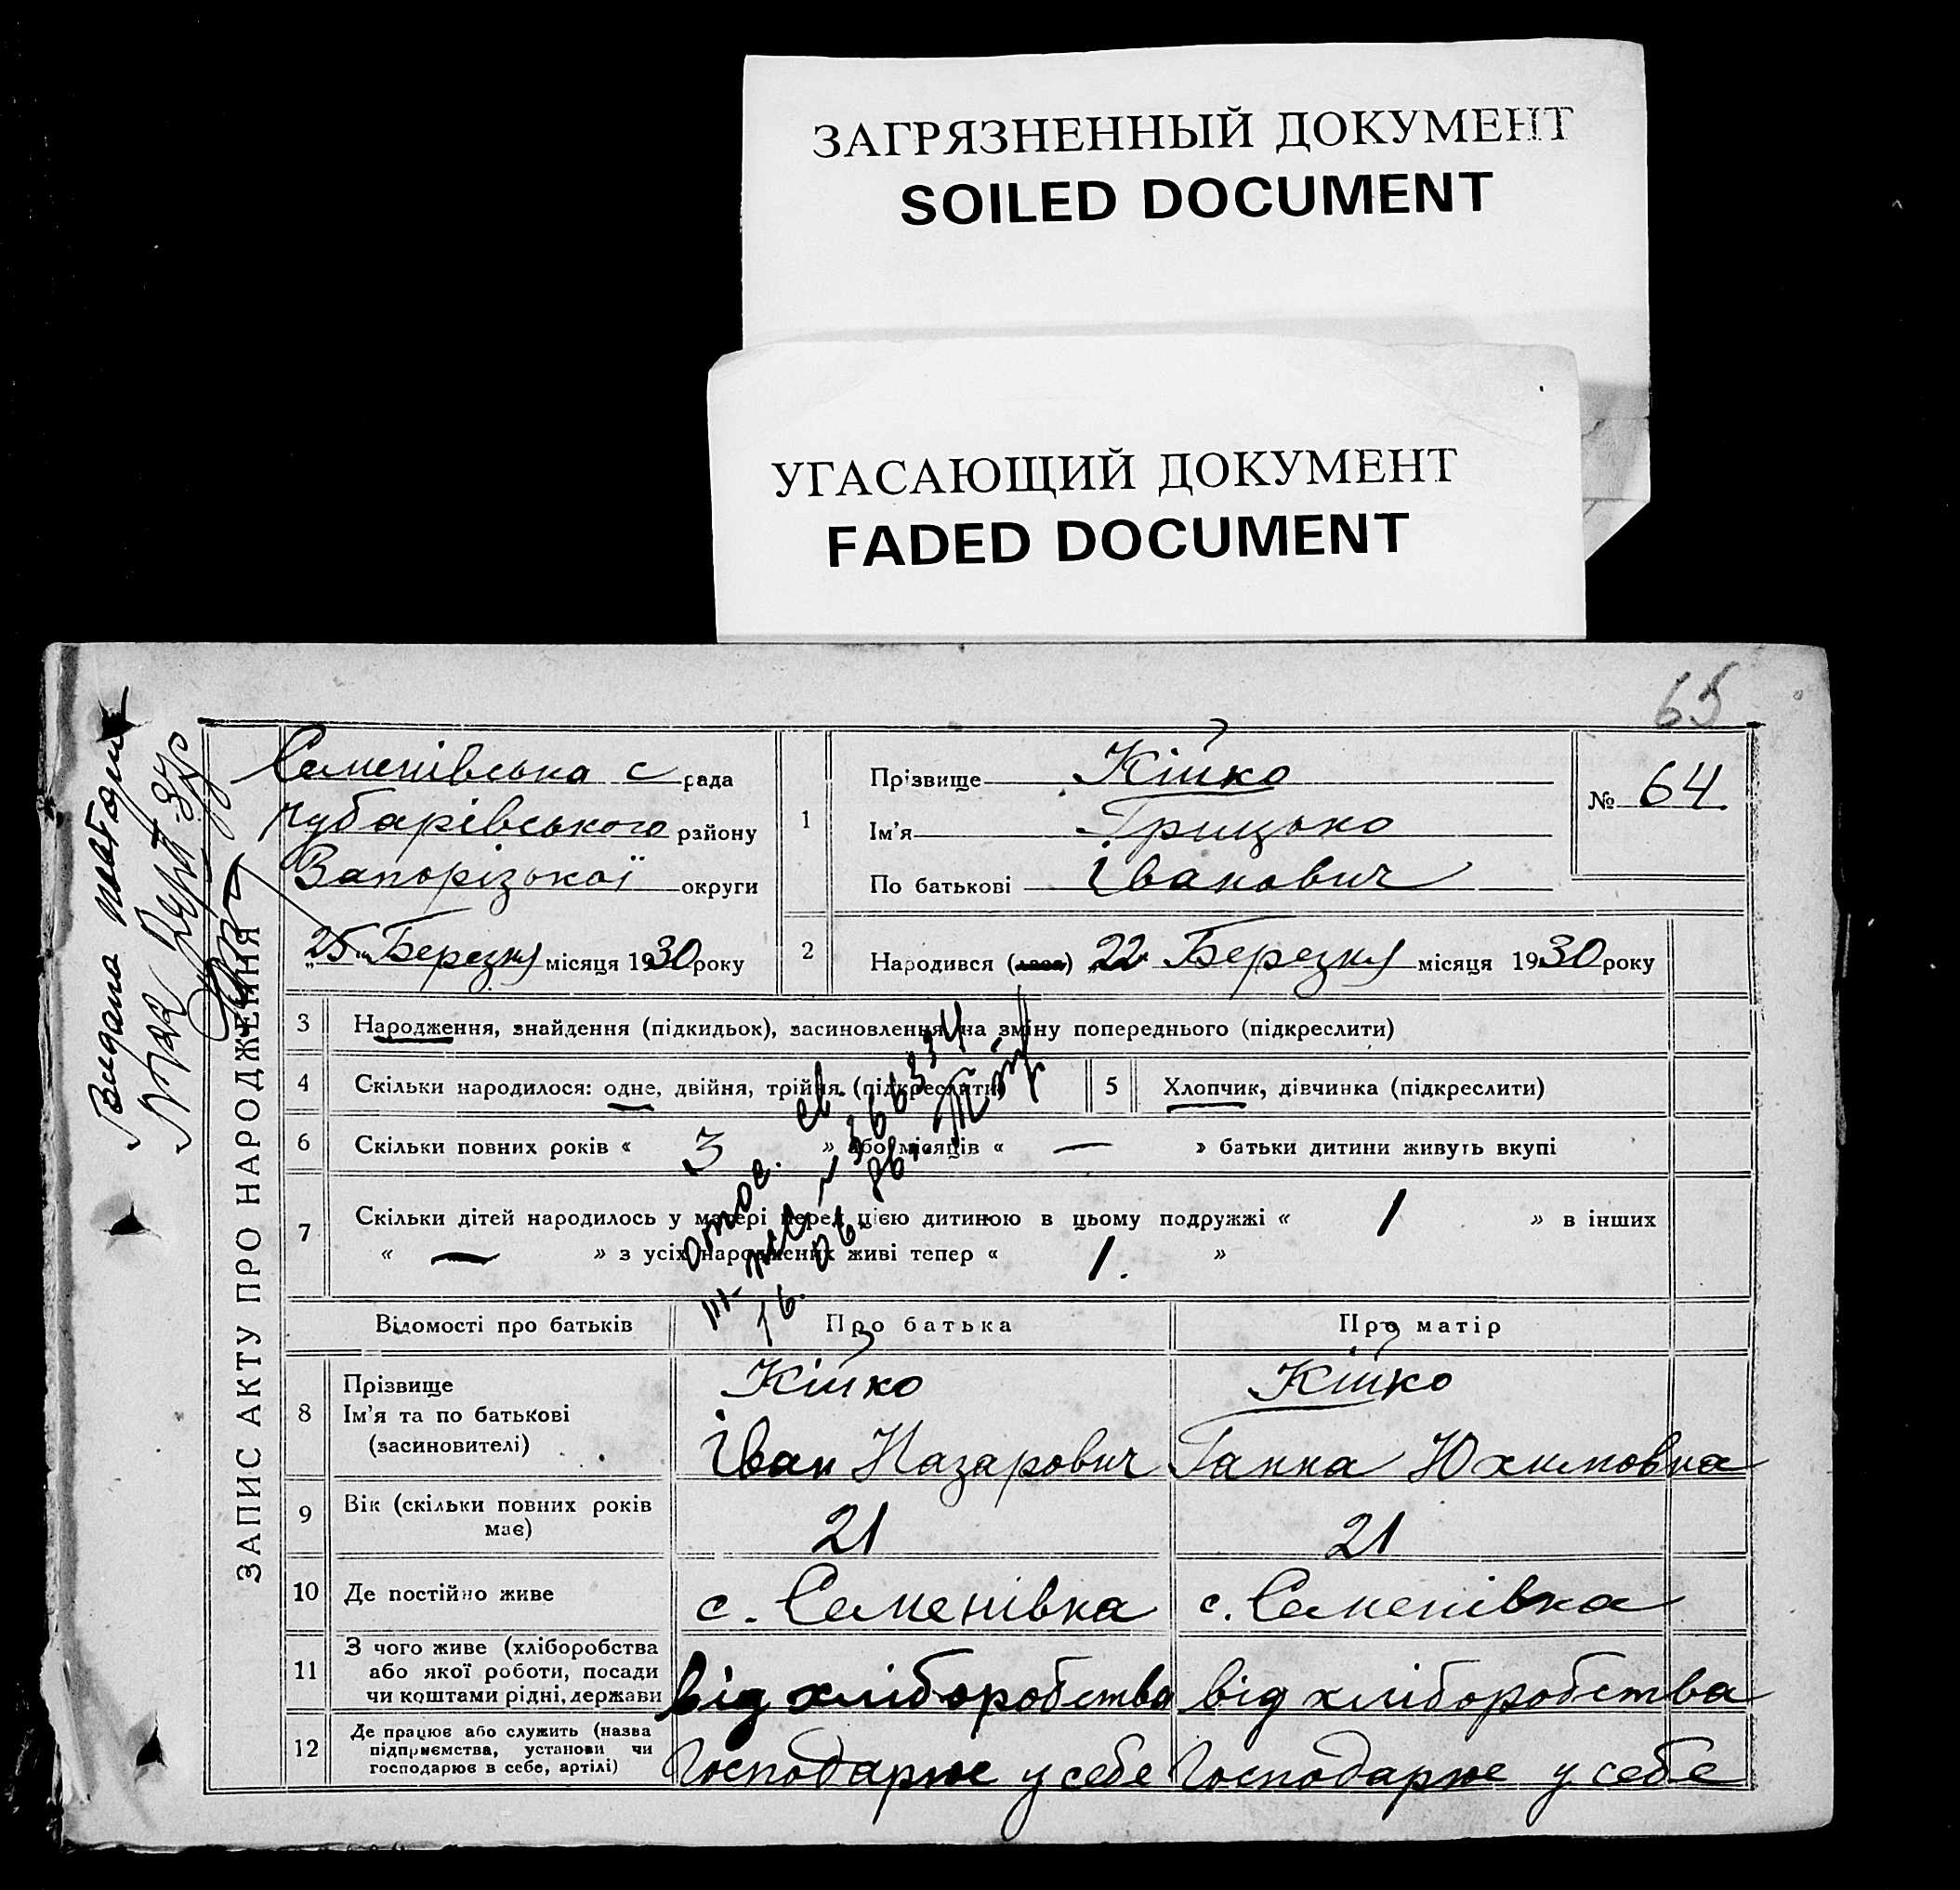 ЗАГРЯЗНЕННЫЙ ДОКУМЕНТ
SOILED DOCUMENT
УГАСАЮЩИЙ ДОКУМЕНТ
FADED DOCUMENT
65
Видана
ЗАПИС АКТУ ПРО НАРОДЖЕННЯ
Семенівська с рада
Чубарівського району
Запорізької округи
25 Березня місяця 1930 року
1
Прізвище Кійко
Ім'я Грицько
По батькові Іванович
№ 64
2
Народився (лася) 22 Березня місяця 1930 року
3 Народження, знайдення (підкидьок), засиновлення на зміну попереднього (підкреслити)
4 Скільки народилося: одне, двійня, трійня (підкреслити)
5 Хлопчик, дівчинка (підкреслити)
6 Скільки повних років « 3 » або місяців « — » батьки дитини живуть вкупі
7 Скільки дітей народилось у матері перед цією дитиною в цьому подружжі « 1 » в інших
« — » з усіх народжених живі тепер « 1. »
Відомості про батьків Про батька Про матір
8 Прізвище Кійко Кійко
Ім'я та по батькові
(засиновителі) Іван Назарович Ганна Юхимовна
9 Вік (скільки повних років
має) 21 21
10 Де постійно живе с. Семенівка с. Семенівка
11 З чого живе (хліборобства
або якої роботи, посади
чи коштами рідні, держави від хліборобства від хліборобства
12 Де працює або служить (назва
підприємства, установи чи
господарює в себе, артілі) Господарює у себе Господарює у себе